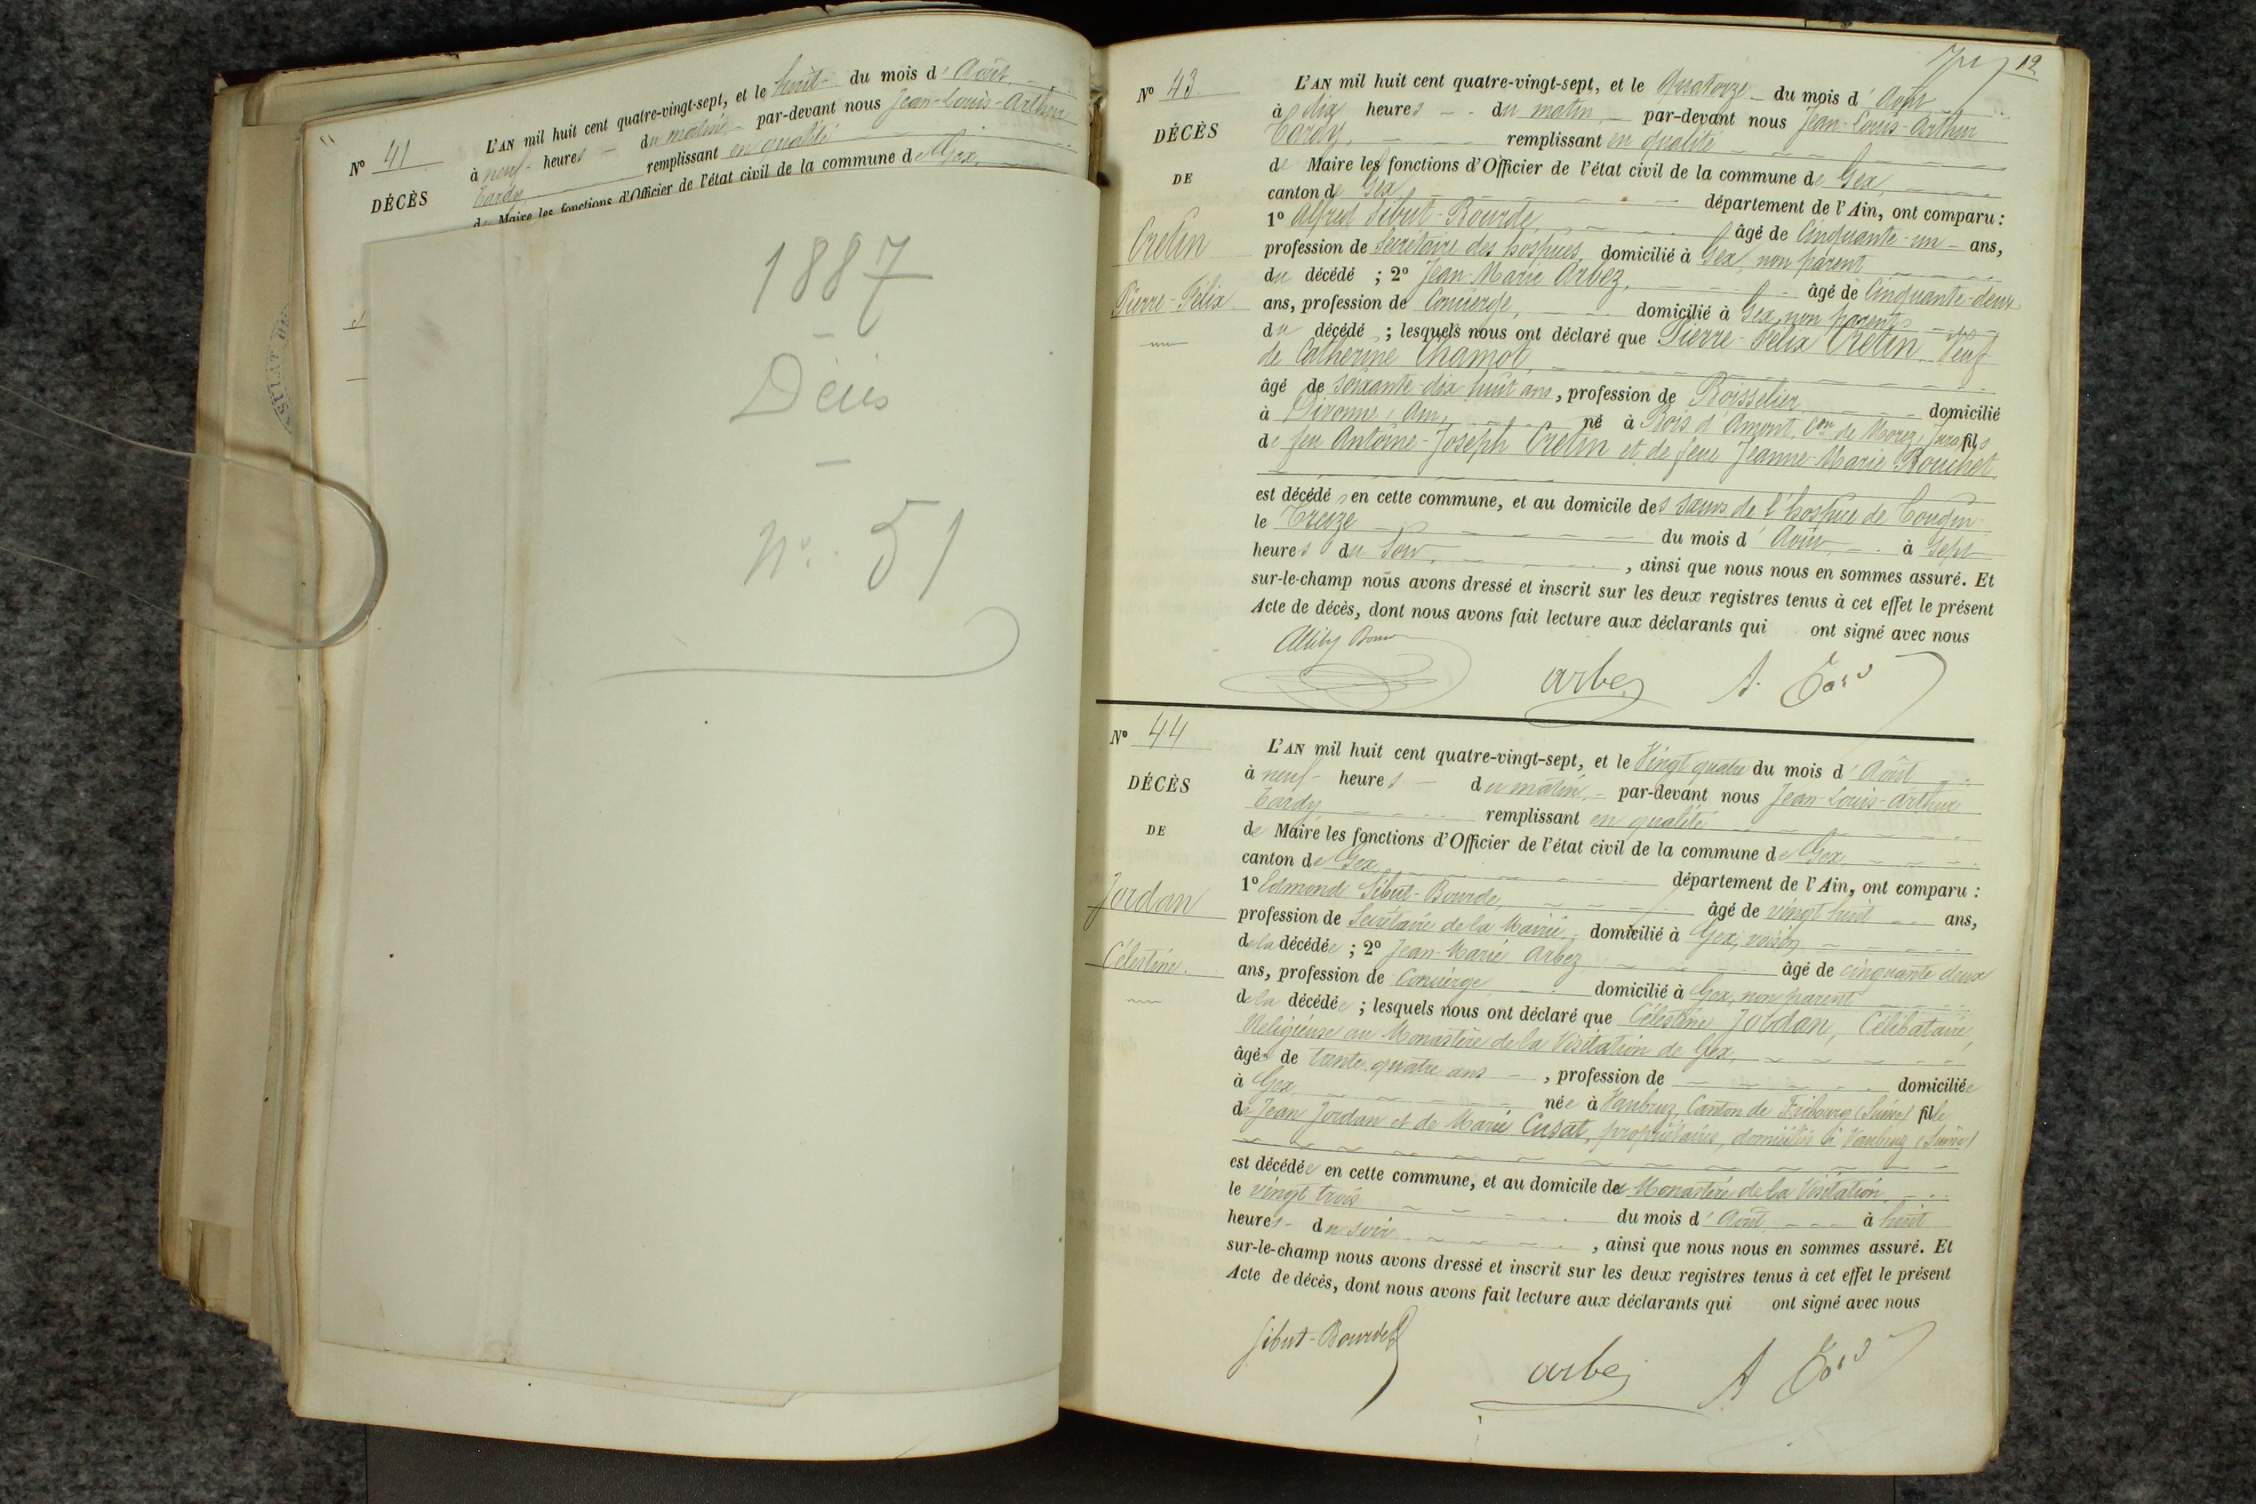 N° 41
DÉCÈS
L'AN mil huit cent quatre-vingt-sept, et le huit du mois d'Août
à neuf heures du matin par-devant nous Jean-Louis-Arthur
Tardy remplissant en qualité
de Maire les fonctions d'Officier de l'état civil de la commune de Gex,
1887
Décès
N° 51
12
N° 43
DÉCÈS
DE
Cretin
Pierre-Félix
L'AN mil huit cent quatre-vingt-sept, et le Quatorze du mois d'Août
à dix heures du matin, par-devant nous Jean-Louis-Arthur
Tardy, remplissant en qualité
de Maire les fonctions d'Officier de l'état civil de la commune de Gex,
canton de Gex département de l'Ain, ont comparu :
1° Alfred Sibut-Bourde, âgé de Cinquante-un ans,
profession de Secrétaire des hospices, domicilié à Gex, non parent
du décédé ; 2° Jean-Marie Arbez, âgé de Cinquante-deux
ans, profession de Concierge, domicilié à Gex, non parent
du décédé ; lesquels nous ont déclaré que Pierre-Félix Cretin, Veuf
de Catherine Chamot,
âgé de soixante-dix huit ans, profession de Boisselier domicilié
à Divonne, Ain, né à Bois d'Amont, Con de Morez, Jura, fils
de feu Antoine-Joseph Cretin et de feue Jeanne-Marie Bouchet
est décédé en cette commune, et au domicile des sœurs de l'hospice de Tougin
le Treize du mois d'Août à Sept
heures du Soir, , ainsi que nous nous en sommes assuré. Et
sur-le-champ nous avons dressé et inscrit sur les deux registres tenus à cet effet le présent
Acte de décès, dont nous avons fait lecture aux déclarants qui ont signé avec nous
arbez A. Tardy
N° 44
DÉCÈS
DE
Jordan
Célestine.
L'AN mil huit cent quatre-vingt-sept, et le Vingt quatre du mois d'Août
à neuf heures du matin, par-devant nous Jean-Louis-Arthur
Tardy remplissant en qualité
de Maire les fonctions d'Officier de l'état civil de la commune de Gex
canton de Gex, département de l'Ain, ont comparu :
1° Edmond Sibut-Bourde, âgé de vingt huit ans,
profession de Secrétaire de la Mairie, domicilié à Gex, voisin
de la décédée ; 2° Jean-Marie Arbez âgé de cinquante deux
ans, profession de Concierge domicilié à Gex, non parent
de la décédée ; lesquels nous ont déclaré que Célestine Jordan, Célibataire,
Religieuse au Monastère de la Visitation de Gex,
âgée de trente quatre ans , profession de domiciliée
à Gex née à Vaubruz, Canton de Fribourg (Suisse) fille
de Jean Jordan et de Marie Cusat, propriétaires, domiciliés à Vaubruz (Suisse)
est décédée en cette commune, et au domicile du Monastère de la Visitation
le vingt trois du mois d'Août à huit
heures du soir , ainsi que nous nous en sommes assuré. Et
sur-le-champ nous avons dressé et inscrit sur les deux registres tenus à cet effet le présent
Acte de décès, dont nous avons fait lecture aux déclarants qui ont signé avec nous
Sibut-Bourde arbez A Tardy